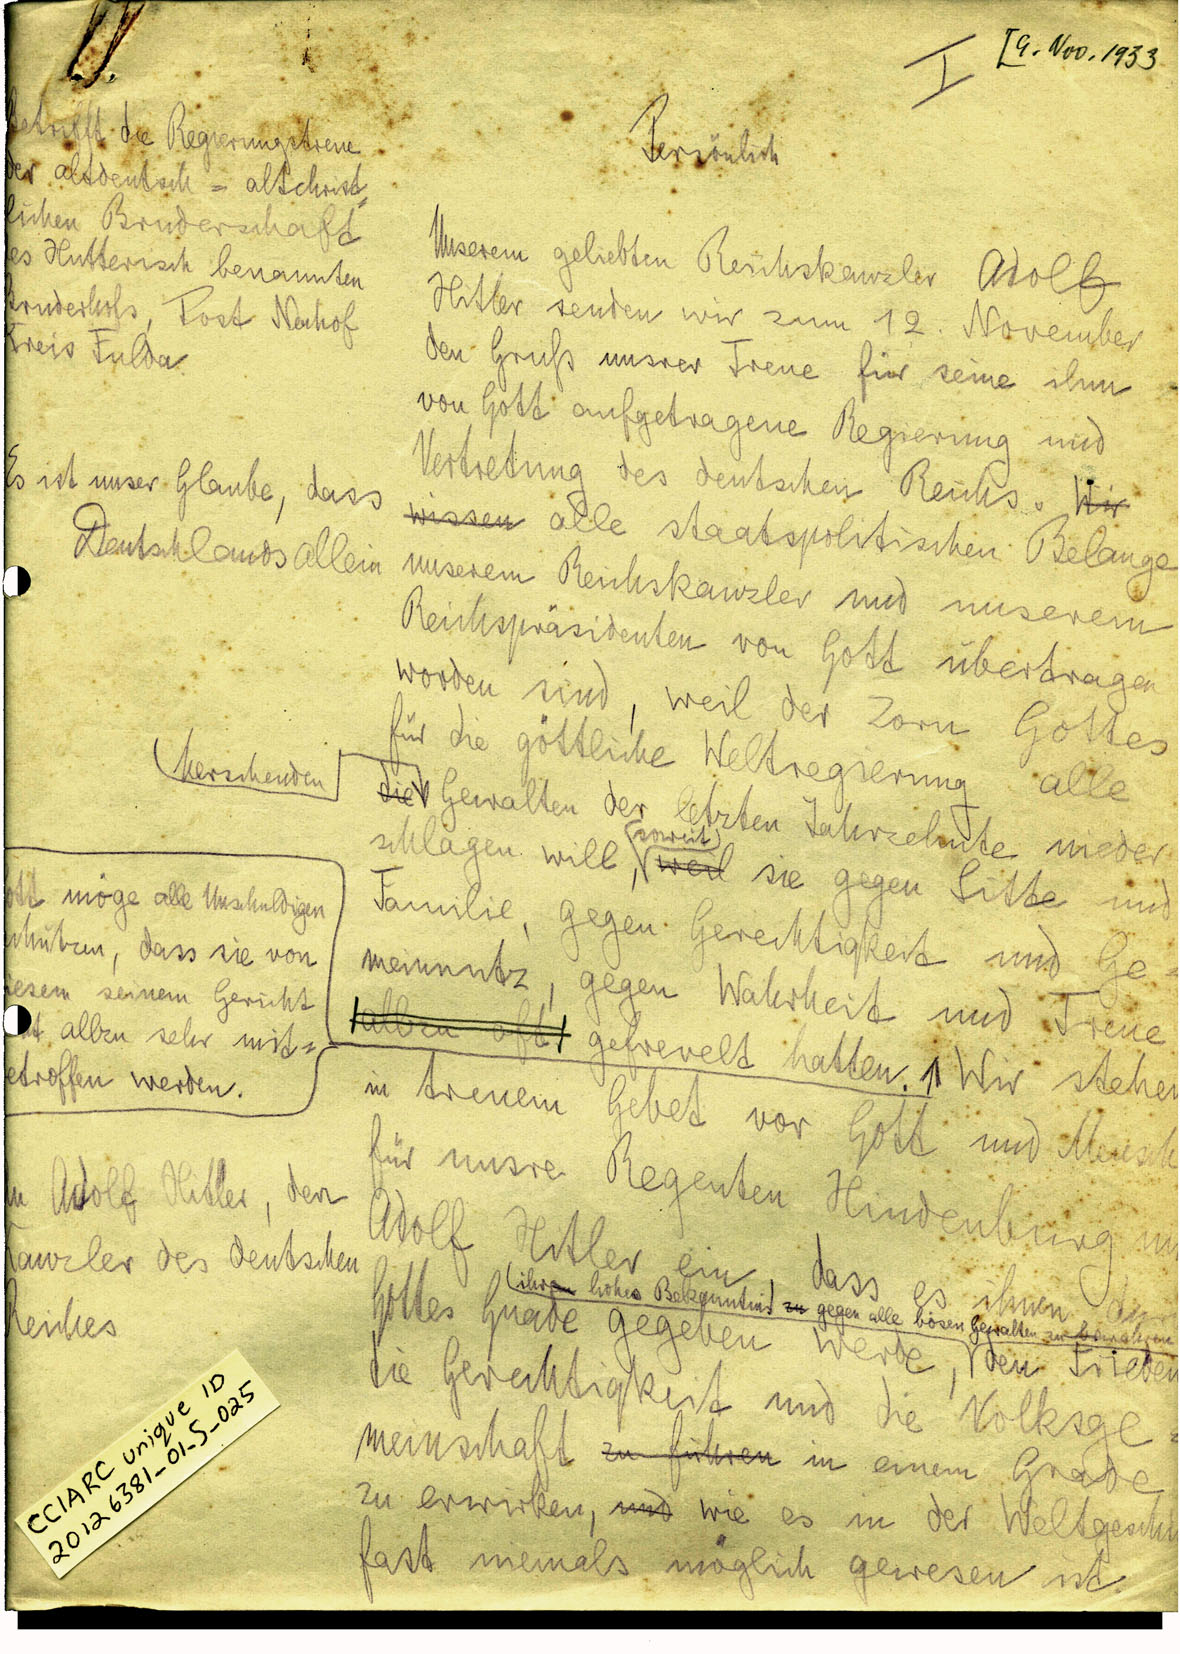 [9. Nov. 1933
I
Persönlich
Betrifft die Regierungstreue
der altdeutsch = altchrist,
lichen Bruderschaft
es Hutterisch benannten
Bruderhofs, Post Neuhof
Kreis Fulda
Unserem geliebten Reichskanzler Adolf
Hitler senden wir zum 12. November
den Gruß unsrer Treue für seine ihm
von Gott aufgetragene Regierung und
Vertretung des deutschen Reichs. Wir
Es ist unser Glaube, dass
wissen alle staatspolitischen Belange
Deutschlands allein
unserem Reichskanzler und unserem
Reichspräsidenten von Gott übertragen
worden sind, weil der Zorn Gottes
für die göttliche Weltregierung alle
herschenden
die Gewalten der letzten Jahrzehnte nieder
schlagen will, weil sie gegen Sitte und
soweit
Familie, gegen Gerechtigkeit und Ge=
meinnutz, gegen Wahrheit und Treue
allzu oft gefrevelt hatten. Wir stehen
ott möge alle Unschuldigen
chützen, dass sie von
iesem seinem Gericht
ht allzu sehr mit=
etroffen werden.
in treuem Gebet vor Gott und Mensch
für unsre Regenten Hindenburg un
Adolf Hitler ein, dass es ihnen
n Adolf Hitler, den
Kanzler des deutschen
Reiches
ihren hohes Bekenntnis zu gegen alle bösen Gewalten zu bewahren
Gottes Gnade gegeben werde, den Frieden
die Gerechtigkeit und die Volksge=
meinschaft zu führen in einem Grade
zu erwirken, und wie es in der Weltgeschi
fast niemals möglich gewesen ist.
CCIARC unique ID
20126381_01_S_025